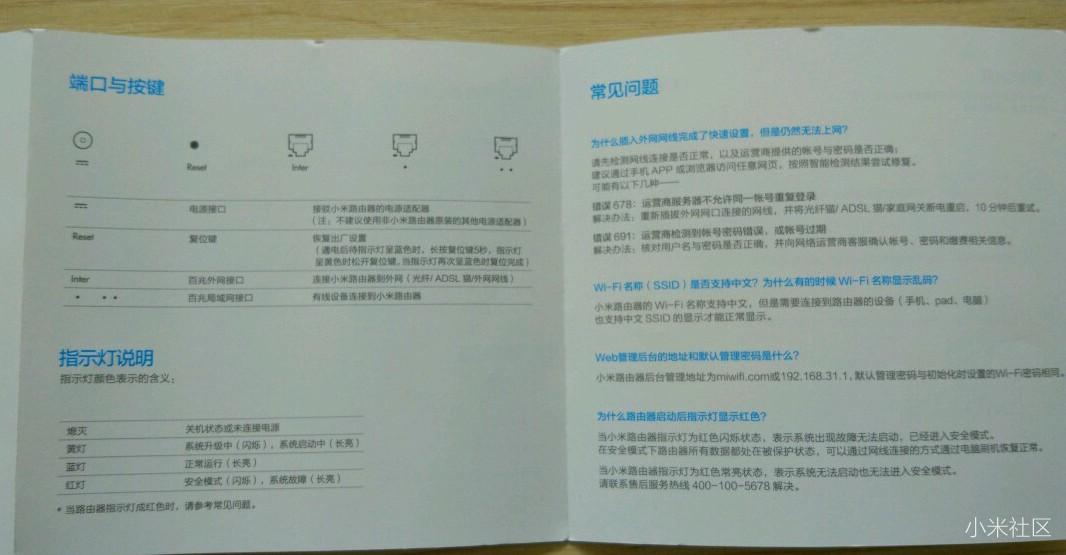 端口与按键
Reset
Inter
电源接口 接驳小米路由器的电源适配器
（注：不建议使用非小米路由器原装的其他电源适配器）
Reset 复位键 恢复出厂设置
（通电后待指示灯呈蓝色时，长按复位键5秒，指示灯
呈黄色时松开复位键，当指示灯再次呈蓝色时复位完成）
Inter 百兆外网接口 连接小米路由器到外网（光纤/ ADSL 猫/外网网线）
百兆局域网接口 有线设备连接到小米路由器
指示灯说明
指示灯颜色表示的含义：
熄灭 关机状态或未连接电源
黄灯 系统升级中（闪烁），系统启动中（长亮）
蓝灯 正常运行（长亮）
红灯 安全模式（闪烁），系统故障（长亮）
* 当路由器指示灯成红色时，请参考常见问题。
常见问题
为什么插入外网网线完成了快速设置，但是仍然无法上网？
请先检测网线连接是否正常，以及运营商提供的帐号与密码是否正确；
建议通过手机 APP 或浏览器访问任意网页，按照智能检测结果尝试修复。
可能有以下几种——
错误 678：运营商服务器不允许同一帐号重复登录
解决办法：重新插拔外网网口连接的网线，并将光纤猫/ ADSL 猫/家庭网关断电重启，10 分钟后重试。
错误 691：运营商检测到帐号密码错误，或帐号过期
解决办法：核对用户名与密码是否正确，并向网络运营商客服确认帐号、密码和缴费相关信息。
Wi-Fi 名称（SSID）是否支持中文？为什么有的时候 Wi-Fi 名称显示乱码？
小米路由器的 Wi-Fi 名称支持中文，但是需要连接到路由器的设备（手机、pad、电脑）
也支持中文 SSID 的显示才能正常显示。
Web管理后台的地址和默认管理密码是什么？
小米路由器后台管理地址为miwifi.com或192.168.31.1，默认管理密码与初始化时设置的Wi-Fi密码相同。
为什么路由器启动后指示灯显示红色？
当小米路由器指示灯为红色闪烁状态，表示系统出现故障无法启动，已经进入安全模式。
在安全模式下路由器所有数据都处在被保护状态，可以通过网线连接的方式通过电脑刷机恢复正常。
当小米路由器指示灯为红色常亮状态，表示系统无法启动也无法进入安全模式。
请联系售后服务热线 400-100-5678 解决。
小米社区